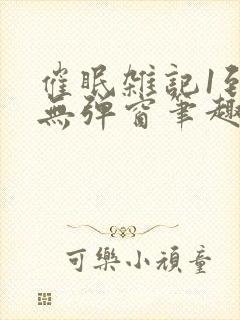 催眠雑記1到
無彈窗筆趣
可樂小頑童